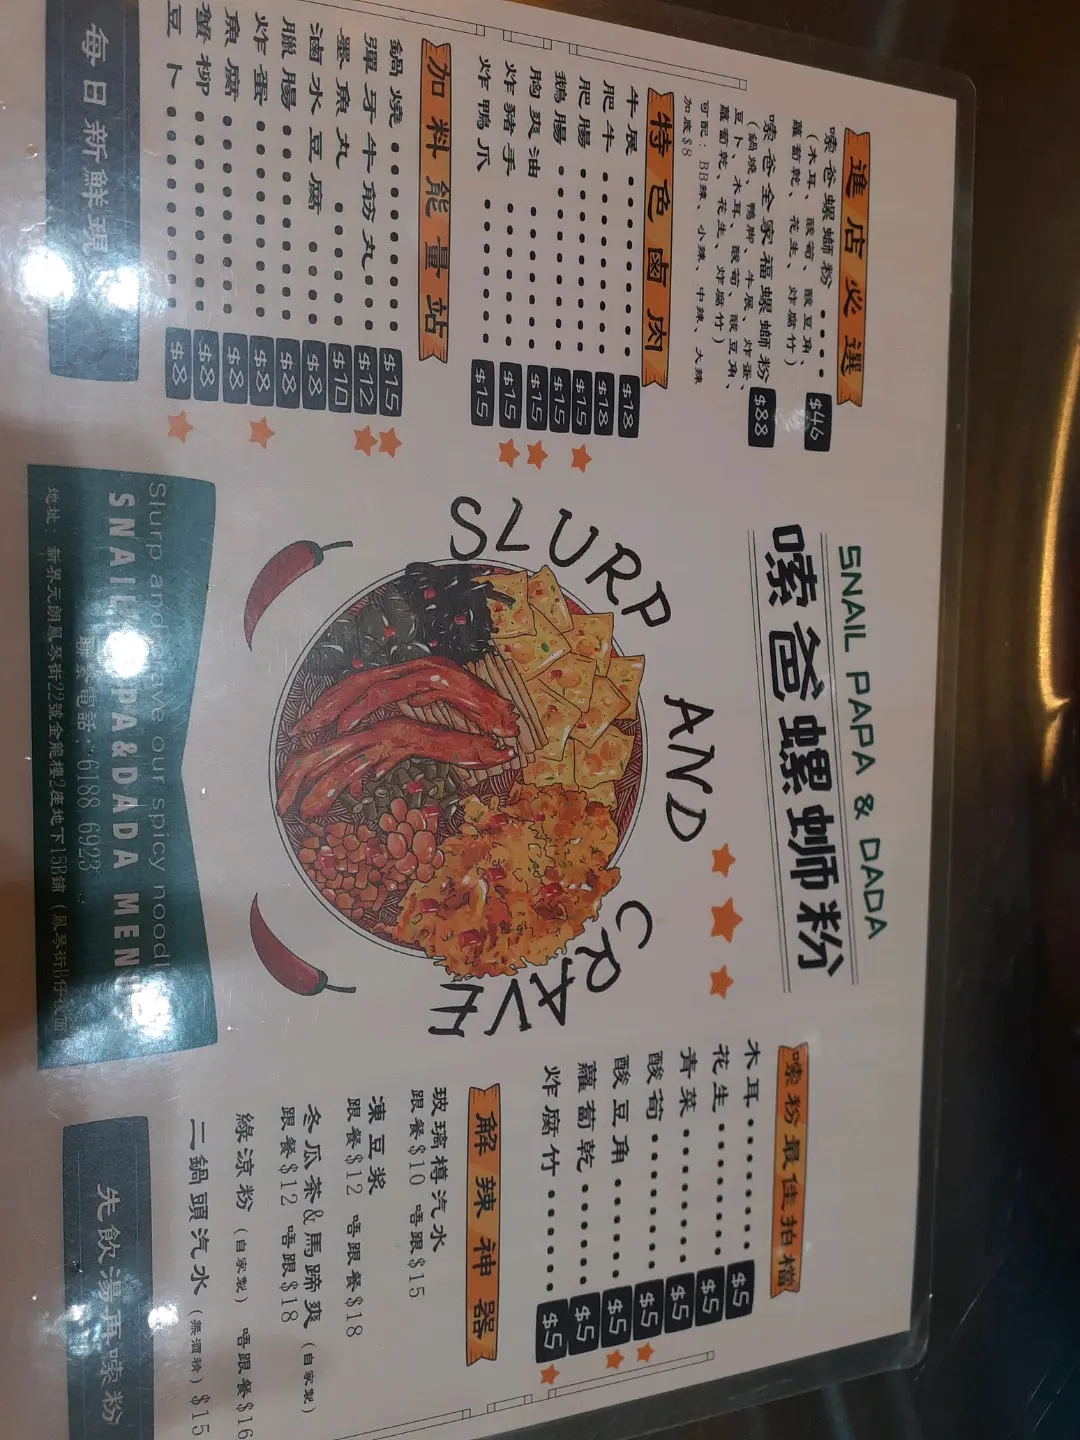 SNAIL PAPA & DADA
嗦爸螺螄粉
進店必選
嗦爸螺螄粉 $46
(木耳、酸荀、酸豆角、
蘿蔔乾、花生、炸腐竹)
嗦爸全家福螺螄粉 $88
(鍋燒、鴨腳、牛展、炸蛋、
豆卜、木耳、酸荀、酸豆角、
蘿蔔乾、花生、炸腐竹)
可配：BB辣、小辣、中辣、大辣
加底$8
特色鹵肉
牛展 $18
肥牛 $18
肥腸 $15
鵝腸 $15
胸爽油 $15
炸豬手 $15
炸鴨爪 $15
加料能量站
鍋燒 $15
彈牙牛筋丸 $12
墨魚丸 $10
滷水豆腐 $8
臘腸 $8
炸蛋 $8
魚腐 $8
蟹柳 $8
豆卜 $8
每日新鮮
SLURP AND CRAVE
嗦粉最佳拍檔
木耳 $5
花生 $5
青菜 $5
酸荀 $5
酸豆角 $5
蘿蔔乾 $5
炸腐竹 $5
解辣神器
玻璃樽汽水
跟餐$10 唔跟$15
凍豆漿
跟餐$12 唔跟餐$18
冬瓜茶&馬蹄爽(自家製)
跟餐$12 唔跟$18
綠涼粉(自家製) 唔跟餐$16
二鍋頭汽水(無酒精)$15
先飲湯再嗦粉
Slurp and our spicy
SNAIL PAPA&DADA MENU
電話：6188 6923
地址：新界元朗鳳琴街22號金龍樓2座地下15B鋪